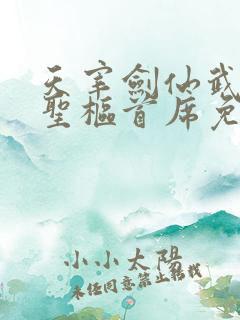 天宰劍仙武
聖樞首席免
小小太陽
未經同意禁止轉載